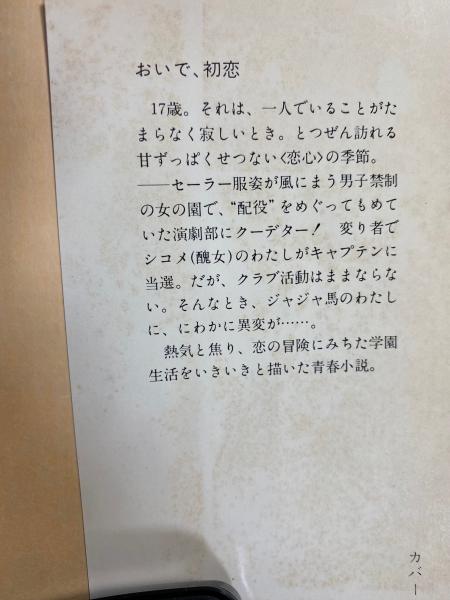 おいで、初恋
17歳。それは、一人でいることがた
まらなく寂しいとき。とつぜん訪れる
甘ずっぱくせつない〈恋心〉の季節。
――セーラー服姿が風にまう男子禁制
の女の園で、“配役”をめぐってもめて
いた演劇部にクーデター! 変り者で
シコメ(醜女)のわたしがキャプテンに
当選。だが、クラブ活動はままならな
い。そんなとき、ジャジャ馬のわたし
に、にわかに異変が……。
熱気と焦り、恋の冒険にみちた学園
生活をいきいきと描いた青春小説。
カバー